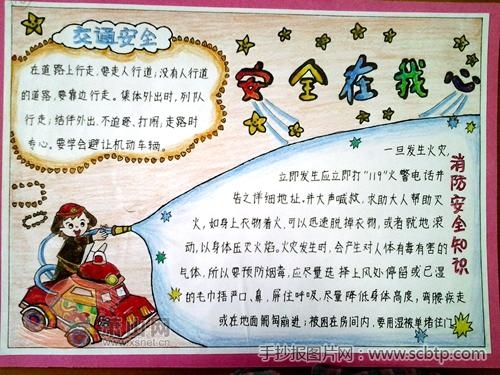 交通安全
在道路上行走,要走人行道;没有人行道
的道路,要靠边行走。集体外出时,列队
行走;结伴外出,不追逐、打闹,走路时
专心。要学会避让机动车辆。
安全在我心
消防安全知识
一旦发生火灾,
立即发生应立即打"119"火警电话并
告之详细地址。并大声喊救,求助大人帮助灭
火,如身上衣物着火,可以迅速脱掉衣物,或者就地滚
动,以身体压灭火焰。火灾发生时,会产生对人体有毒有害的
气体,所以要预防烟毒,应尽量选择上风处停留或已湿
的毛巾捂严口、鼻,屏住呼吸,尽量降低身体高度,弯腰疾走
或在地面匍匐前进;被困在房间内,要用湿被单堵住门
www.xsnet.cn
手抄报图片网:www.scbtp.com